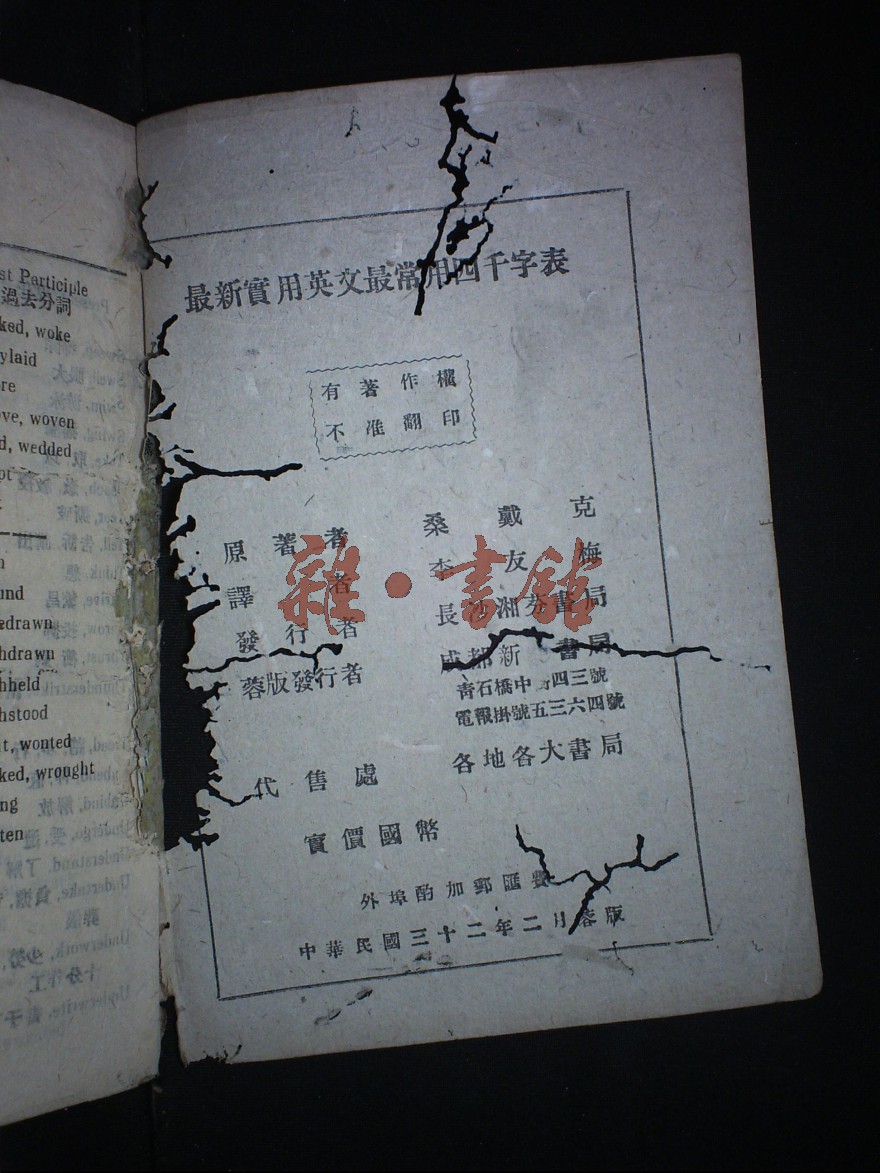 st Participle
過去分詞
ked, woke
ylaid
ore
ove, woven
d, wedded
pt
n
und
edrawn
hdrawn
hheld
hstood
t, wonted
ked, wrought
ng
ten
最新實用英文最常用四千字表
有著作權
不准翻印
原著者 桑戴克
譯者 李友梅
發行者 長沙湘芬書局
蓉版發行者 成都新 書局
青石橋中 四三號
電報掛號五三六四號
代售處 各地各大書局
實價國幣
外埠酌加郵匯費
中華民國三十二年二月蓉版
雜·書館